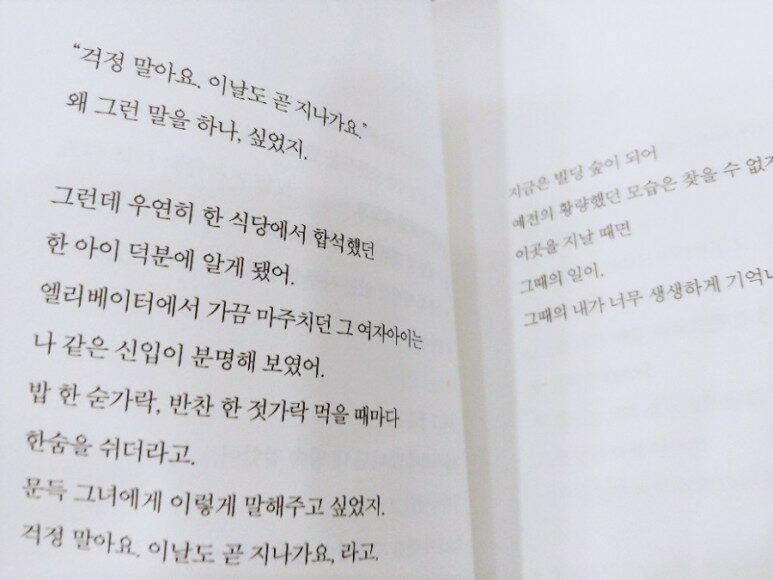 “걱정 말아요. 이날도 곧 지나가요.”
왜 그런 말을 하나, 싶었지.
그런데 우연히 한 식당에서 합석했던
한 아이 덕분에 알게 됐어.
엘리베이터에서 가끔 마주치던 그 여자아이는
나 같은 신입이 분명해 보였어.
밥 한 숟가락, 반찬 한 젓가락 먹을 때마다
한숨을 쉬더라고.
문득 그녀에게 이렇게 말해주고 싶었지.
걱정 말아요. 이날도 곧 지나가요, 라고.
지금은 빌딩 숲이 되어
예전의 황량했던 모습은 찾을 수 없
이곳을 지날 때면
그때의 일이.
그때의 내가 너무 생생하게 기억